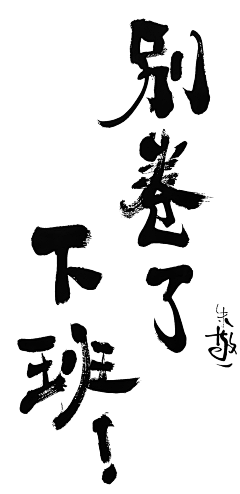 别卷了
下班！
朱敬一